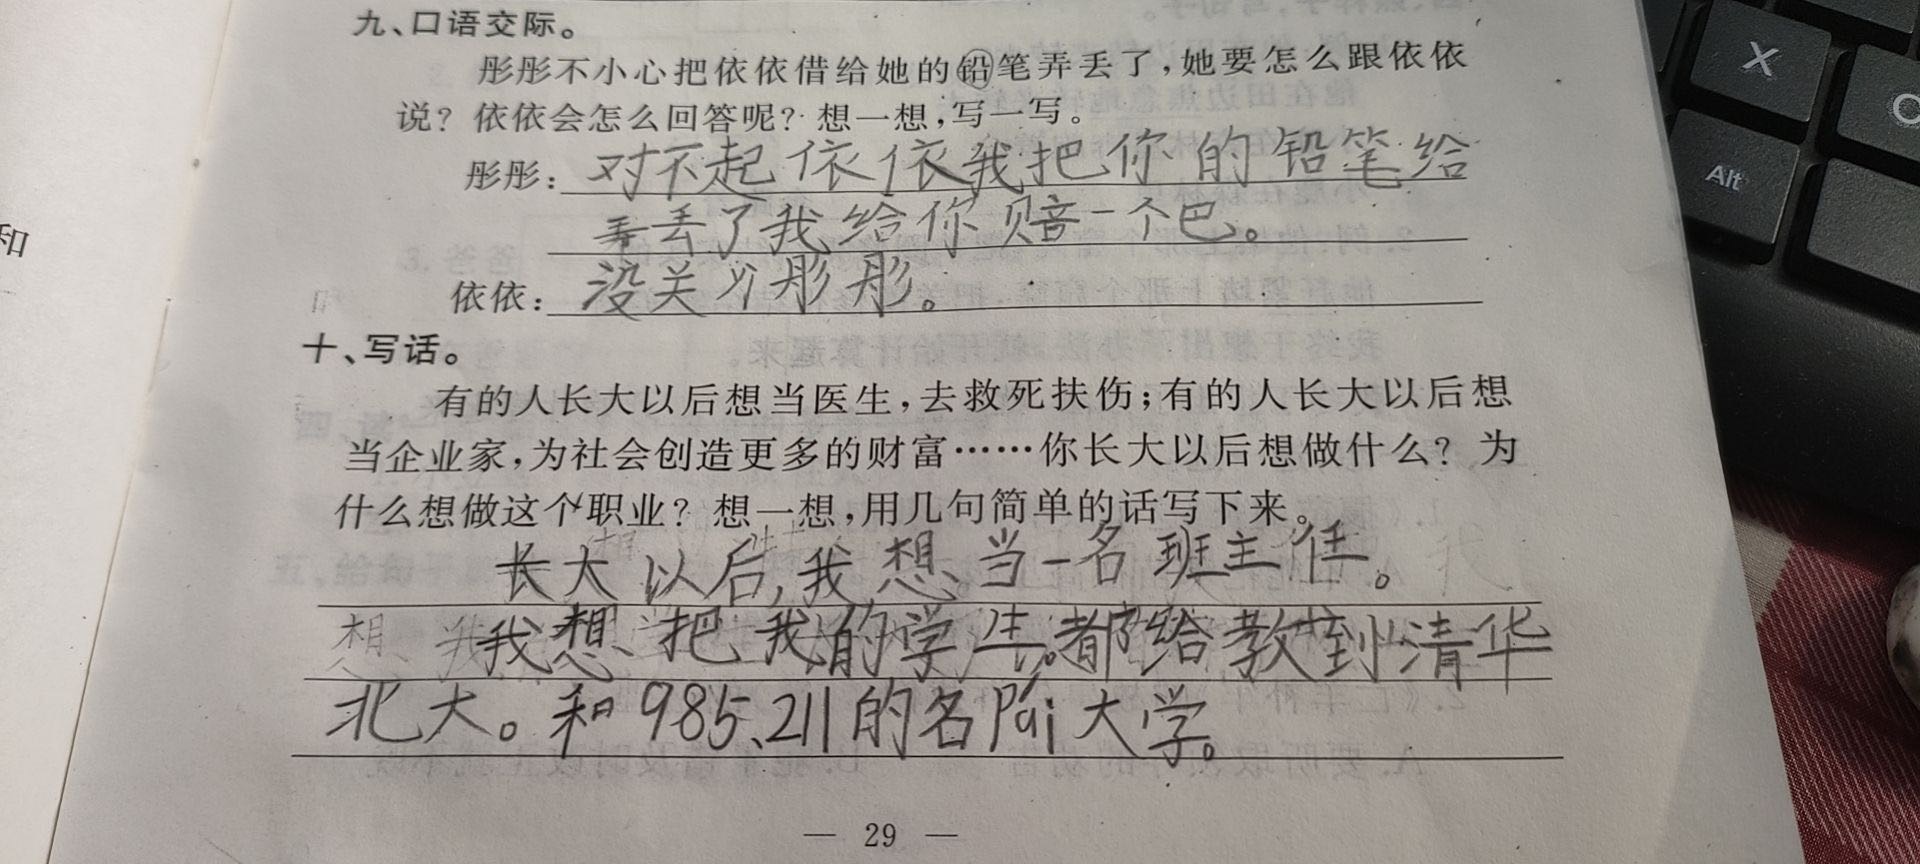 九、口语交际。
彤彤不小心把依依借给她的铅笔弄丢了，她要怎么跟依依
说？依依会怎么回答呢？想一想，写一写。
彤彤：对不起依依我把你的铅笔给
弄丢了我给你赔一个巴。
依依：没关 彤彤。
十、写话。
有的人长大以后想当医生，去救死扶伤；有的人长大以后想
当企业家，为社会创造更多的财富……你长大以后想做什么？为
什么想做这个职业？想一想，用几句简单的话写下来。
长大以后，我想当一名班主任。
我想把我的学生。都给教到清华
北大。和985、211的名Pai大学。
— 29 —
和
X
Alt